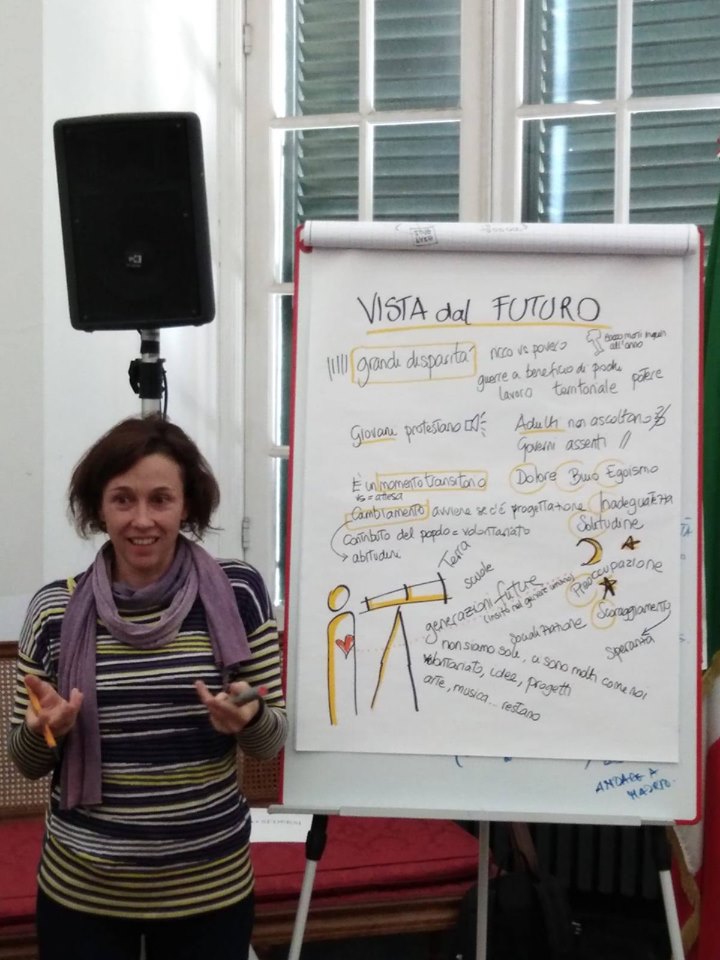 VISTA dal FUTURO
grandi disparità
ricco vs povero
guerre a beneficio di pochi
lavoro territoriale potere
Giovani protestano
Adulti non ascoltano
Governi assenti
È un momento transitorio
vs = attesa
Dolore Buio Egoismo
Cambiamento avviene se c'è progettazione
Inadeguatezza
Solitudine
contributo del popolo = volontariato
abitudini
Terra
scuole
generazioni future
Preoccupazione
Scoraggiamento
Speranza
non siamo sole, ci sono molti come noi
volontariato, idee, progetti
arte, musica... restano
ANDARE A